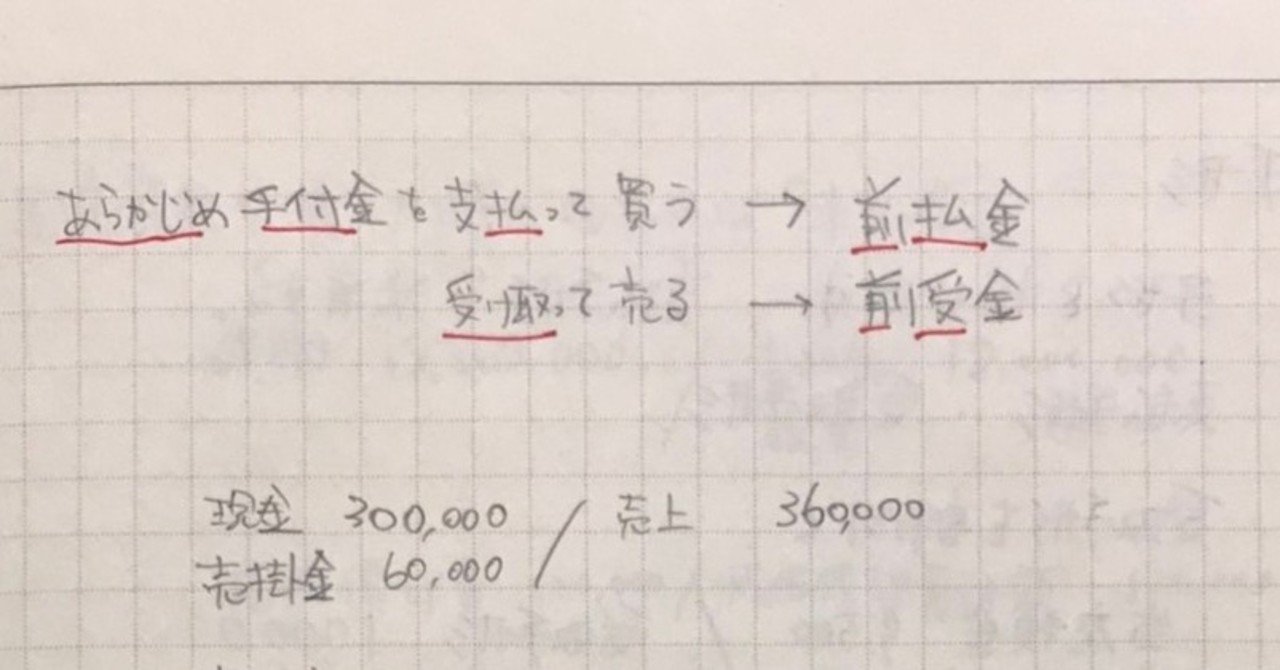 あらかじめ手付金を支払って買う → 前払金
受け取って売る → 前受金
現金 300,000 / 売上 360,000
売掛金 60,000